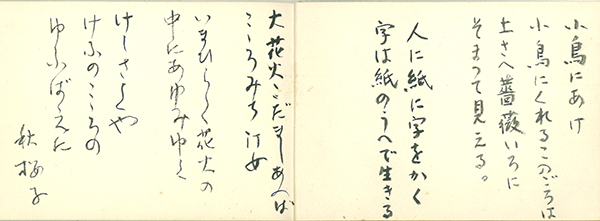 小鳥にあけ
小鳥にくれるこのごろは
土さへ薔薇いろに
そまつて見える。
人に紙に字をかく
字は紙のうへで生きる
大花火こだましあへば
こころみち 汀女
いまひらく花火の
中にあゆみゆく
けしさくや
けふのこころの
ゆふばえに
秋桜子